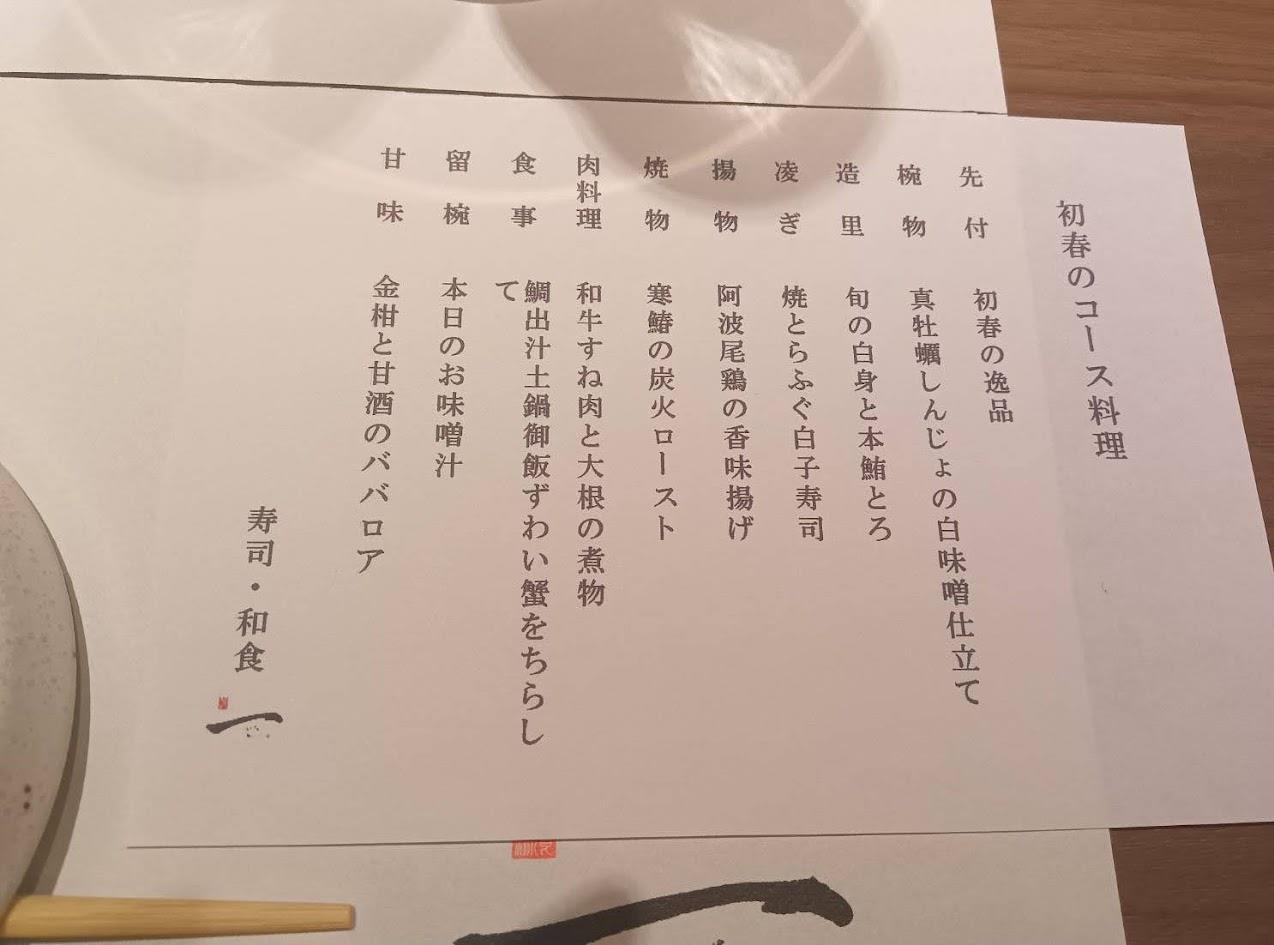 初春のコース料理
先付 初春の逸品
椀物 真牡蠣しんじょの白味噌仕立て
造里 旬の白身と本鮪とろ
凌ぎ 焼とらふぐ白子寿司
揚物 阿波尾鶏の香味揚げ
焼物 寒鰆の炭火ロースト
肉料理 和牛すね肉と大根の煮物
食事 鯛出汁土鍋御飯ずわい蟹をちらし
て
留椀 本日のお味噌汁
甘味 金柑と甘酒のババロア
寿司・和食
一